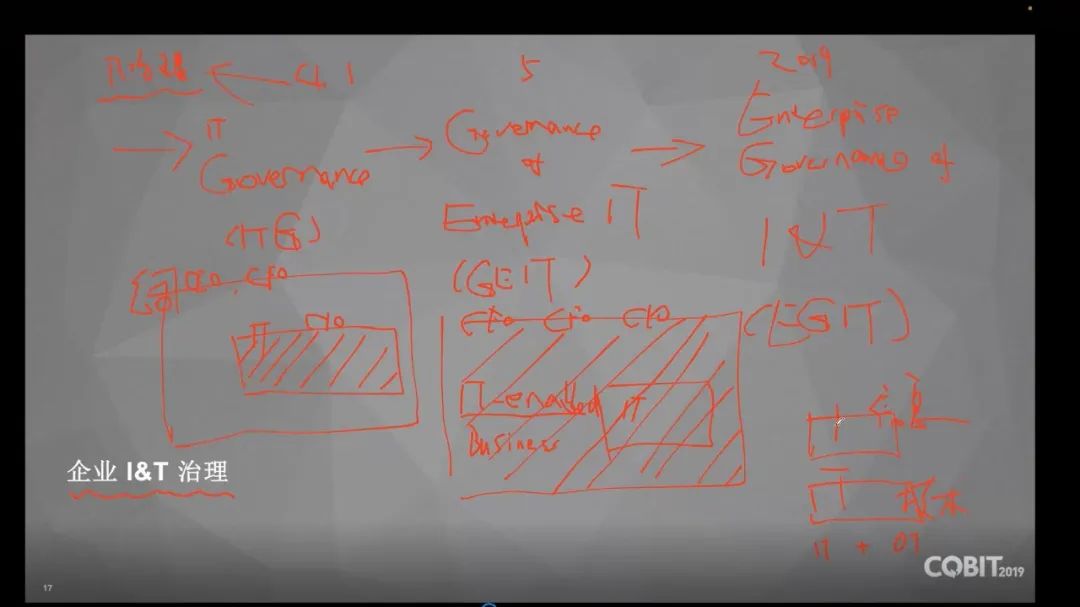 4.1
5
2019
IT
Governance
(ITG)
Governance
of
Enterprise IT
(GEIT)
Enterprise
Governance of
I&T
(EGIT)
CEO CFO
IT CIO
CEO CFO CIO
IT-enabled
Business
IT
I
信息
T 技术
IT + OT
企业 I&T 治理
17
COBIT 2019